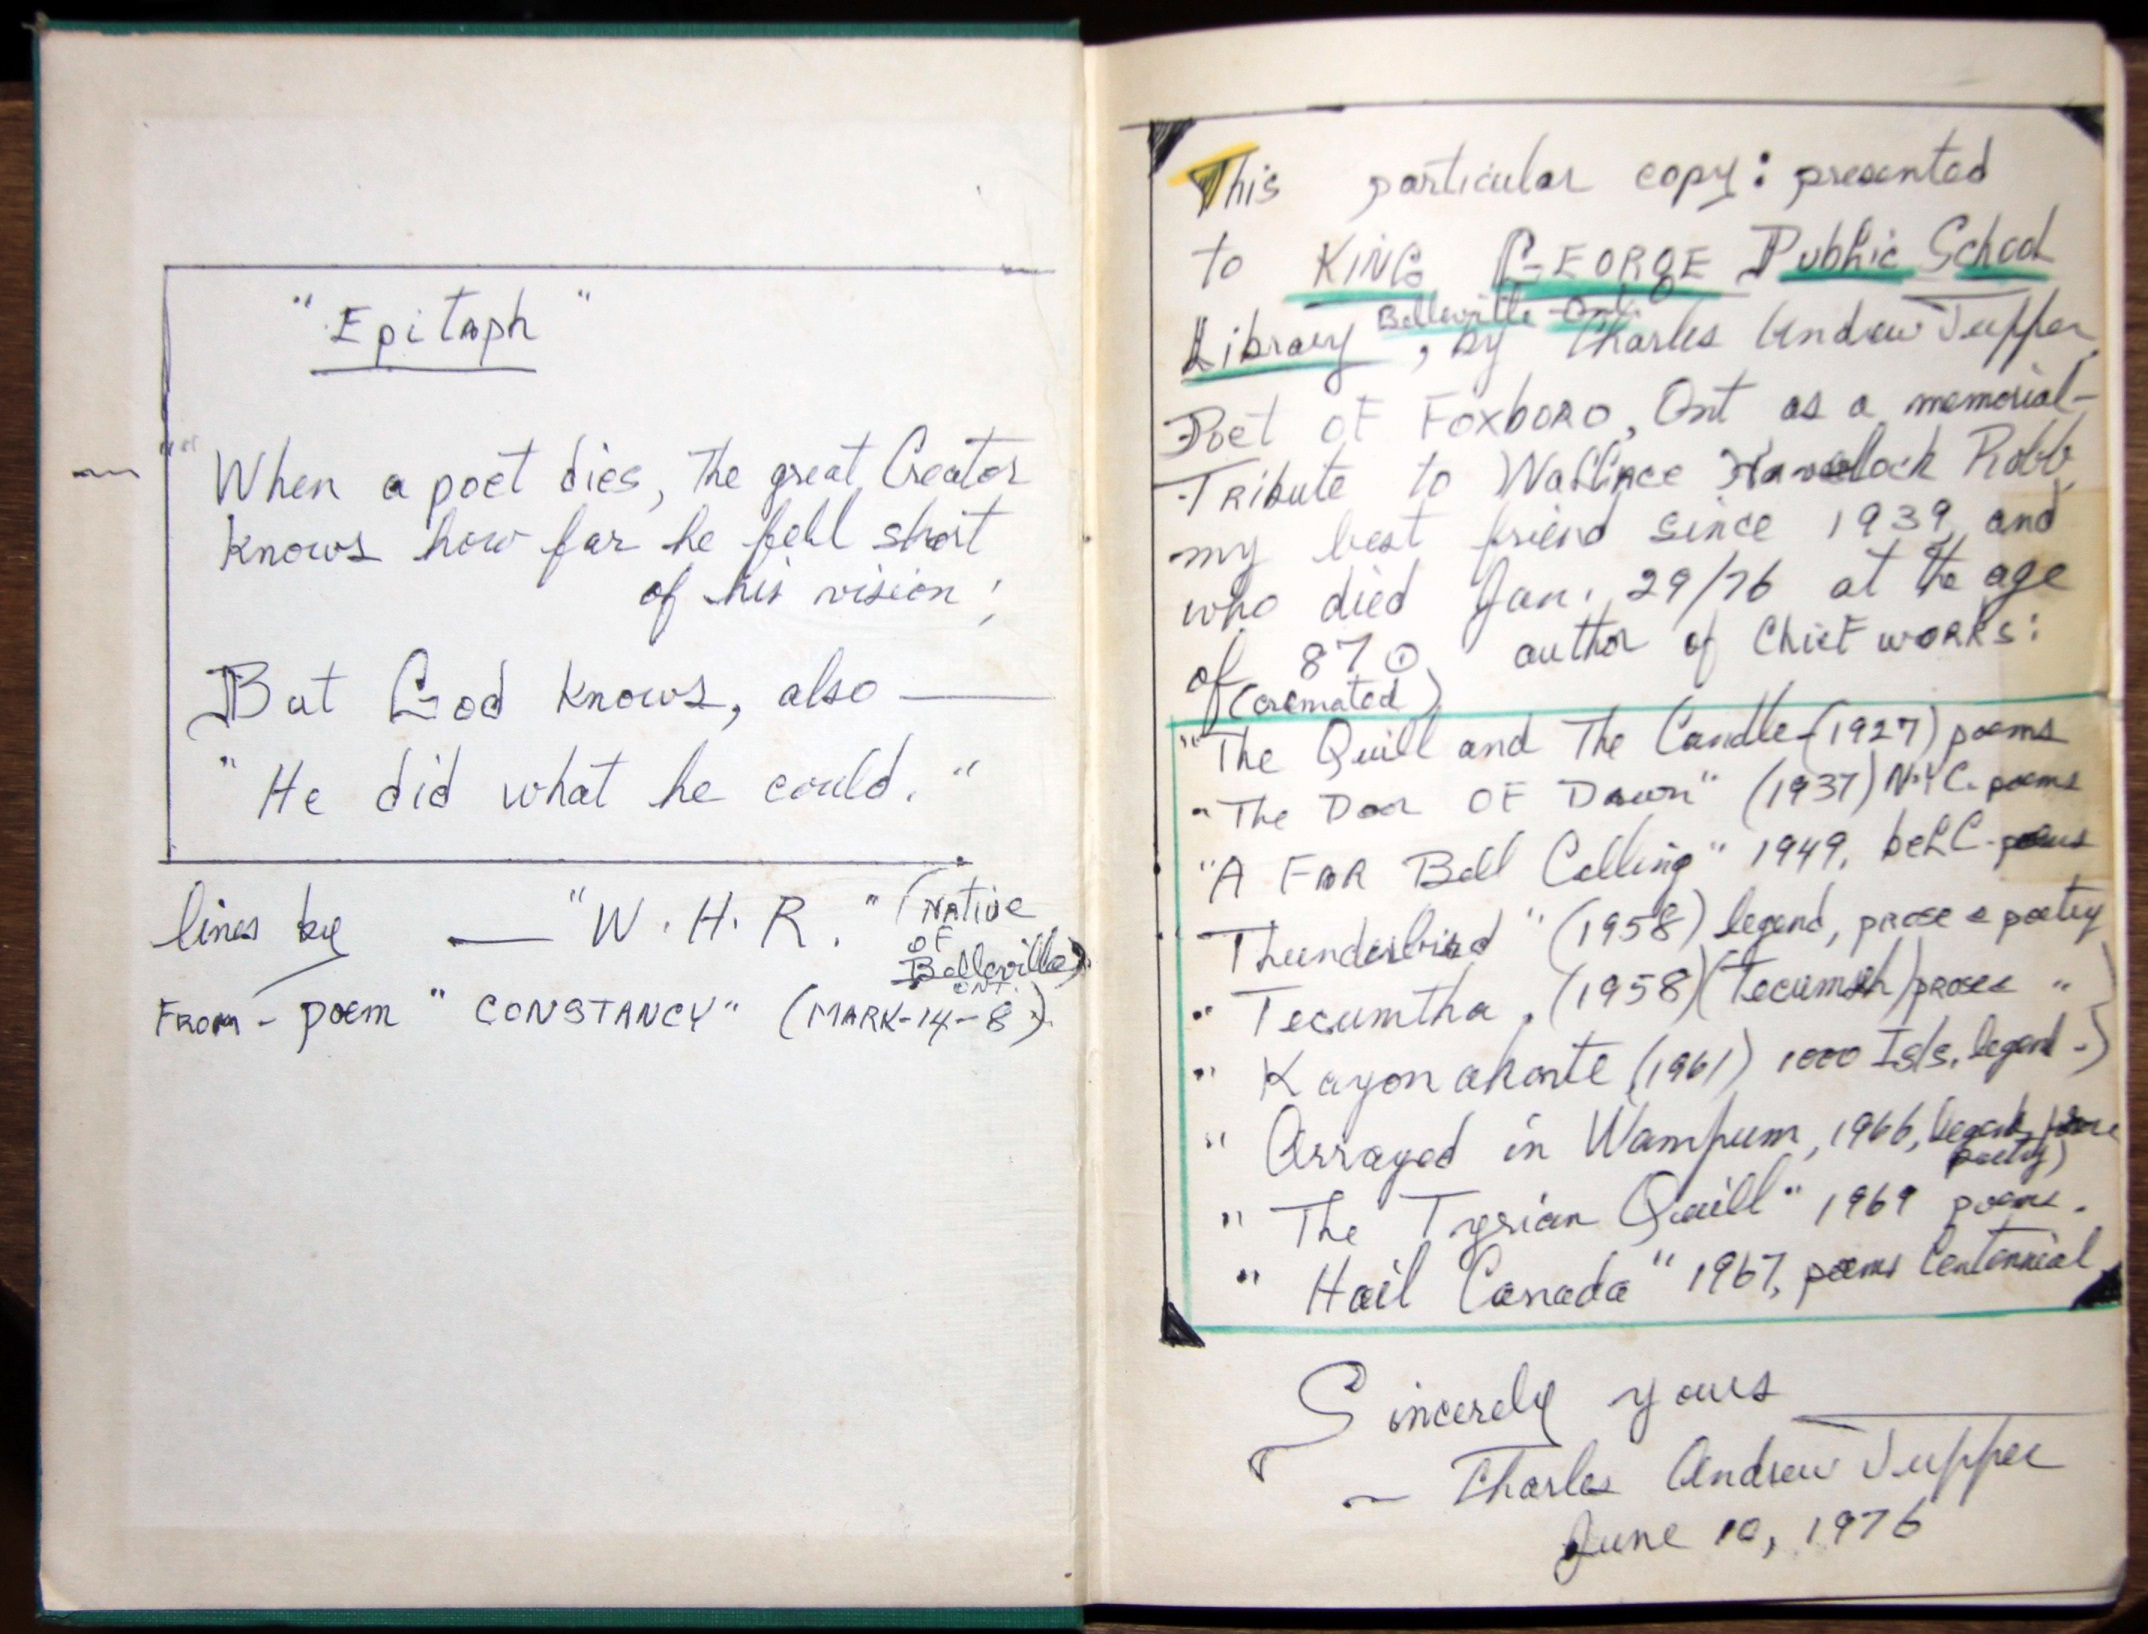 "Epitaph"
"When a poet dies, The great Creator
knows how far he fell short
of his vision;
But God knows, also —
"He did what he could."
lines by — "W. H. R." (Native
of
Belleville)
ONT.
From - poem "CONSTANCY" (MARK-14-8)
This particular copy: presented
to KING GEORGE Public School
Belleville Ont.
Library, by Charles Andrew Tupper
Poet of Foxboro, Ont as a memorial-
Tribute to Wallace Havelock Robb,
my best friend since 1939, and
who died Jan. 29/76 at the age
of 87 author of Chief works:
(cremated)
"The Quill and The Candle-(1927) poems
"The Door OF Dawn" (1937) N.Y.C. poems
"A FAR Bell Calling" 1949. poems
Thunderbird" (1958) legend, prose & poetry
" Tecumtha, (1958) (Tecumseh) prose "
" Kayonahonte (1961) 1000 Isls. legend -)
" Arrayed in Wampum, 1966, legends, prose
poetry)
" The Tyrian Quill" 1969 poems.
" Hail Canada" 1967, poems Centennial
Sincerely yours
— Charles Andrew Tupper
June 10, 1976